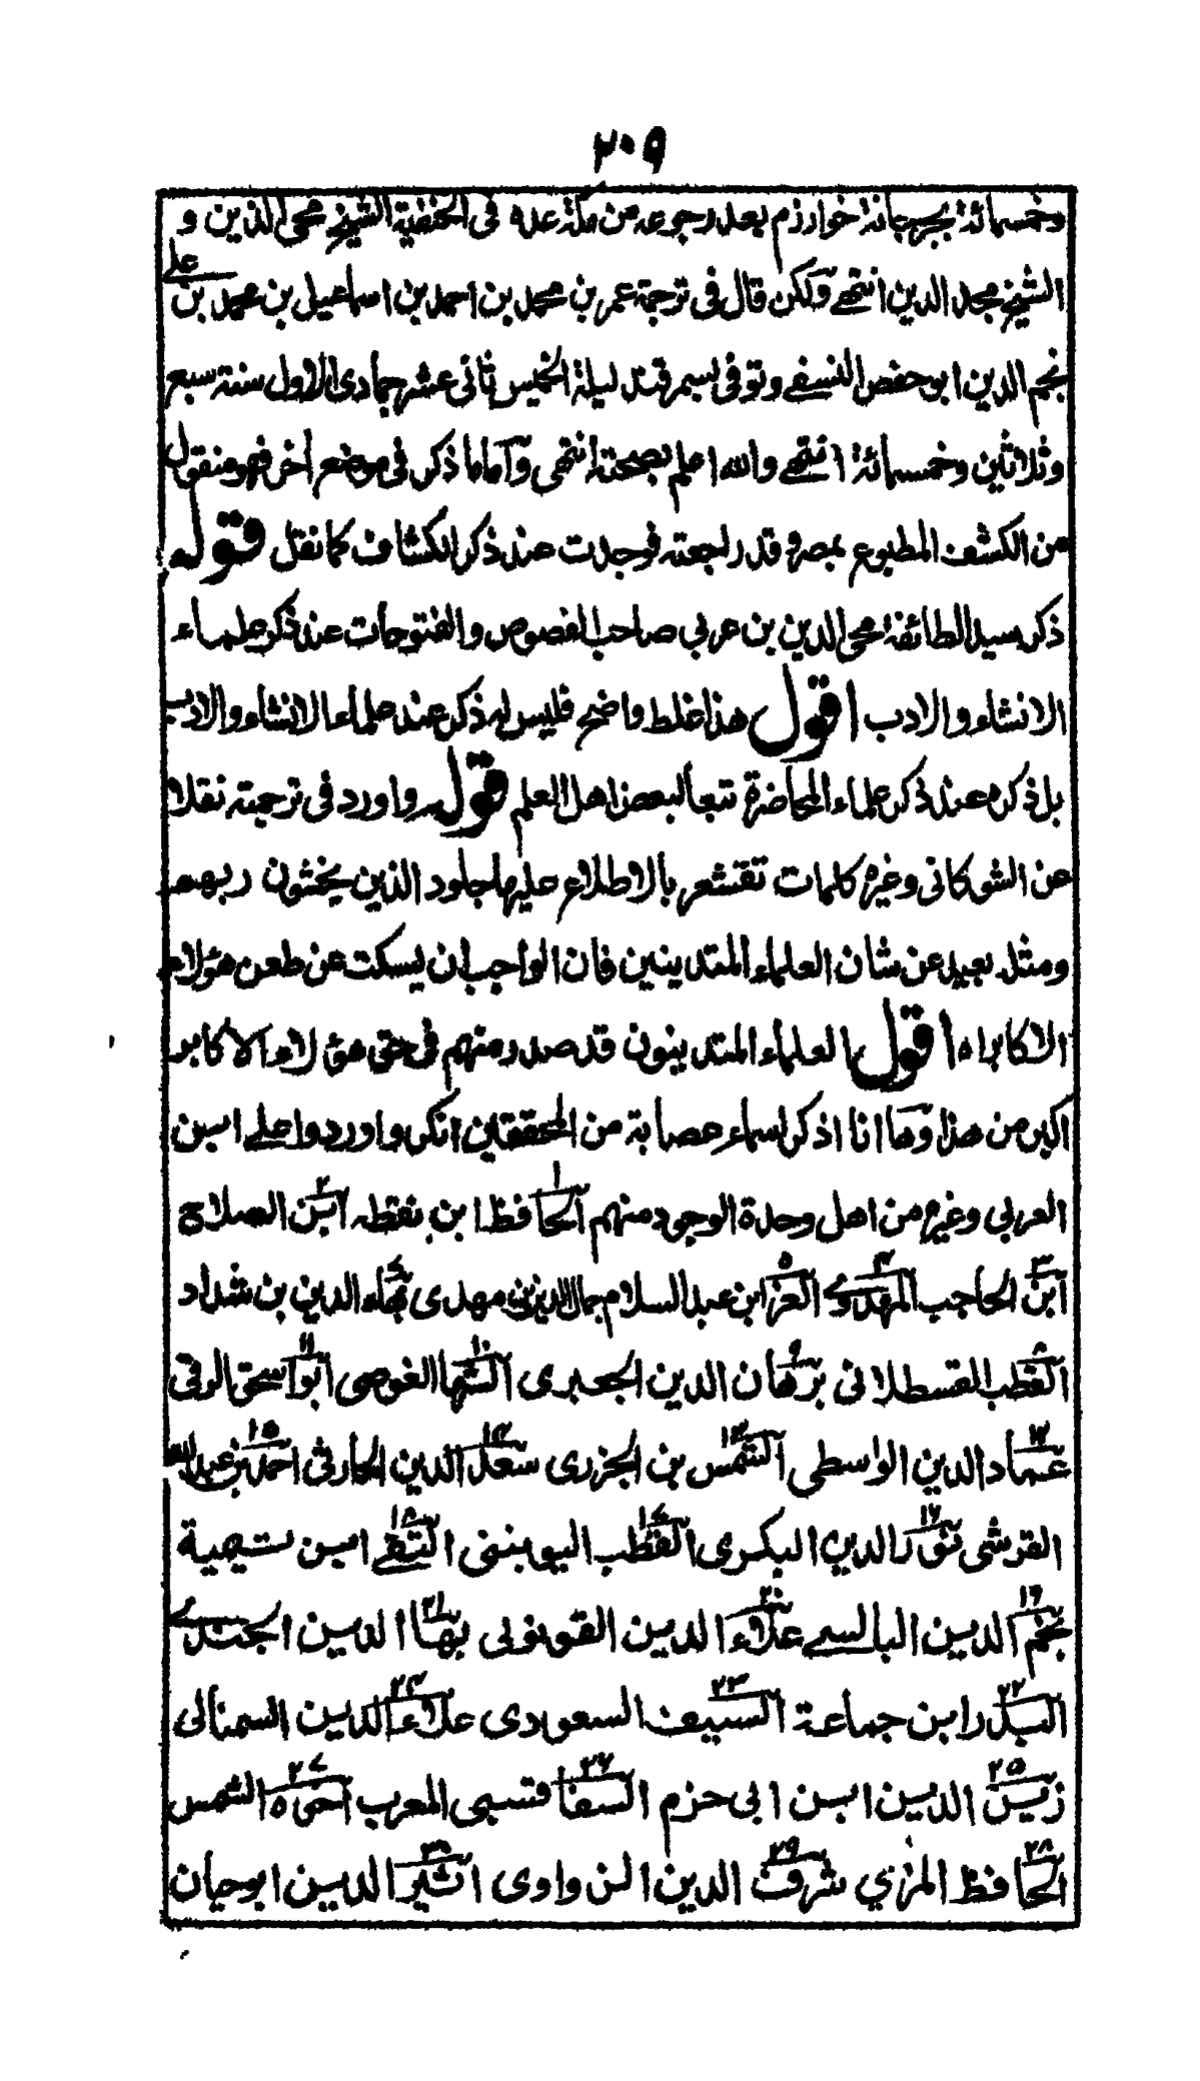 ٢٠٩
وخمسمائة بجرجانة خوارزم بعد رجوعه من مكة عده في الحنفية الشيخ محي الدين و
الشيخ مجد الدين انتهى ولكن قال في ترجمة عمر بن محمد بن احمد بن اسماعيل بن محمد بن علي
نجم الدين ابو حفص النسفي وتوفي بسمرقند ليلة الخميس ثاني عشر جمادى الاول سنة سبع
وثلاثين وخمسمائة انتهى والله اعلم بصحته انتهى وآما ما ذكر في موضع اخر فهو منقول
من الكشف المطبوع بمصر وقد راجعته فوجدت عند ذكر الكشاف كما نقل قوله
ذكر سيد الطائفة محي الدين بن عربي صاحب الفصوص والفتوحات عند ذكر علماء
الانشاء والادب اقول هذا غلط واضح فليس له ذكر عند علماء الانشاء والادب
بل ذكره عند ذكر علماء المحاضرة تبعا لبعض اهل العلم قوله واورد في ترجمته نقلا
عن الشوكاني وغيره كلمات تقشعر بالاطلاع عليها جلود الذين يخشون ربهم
ومثله بعيد عن شان العلماء المتدينين فان الواجب ان يسكت عن طعن هؤلاء
الاكابر اه اقول العلماء المتدينون قد صدر منهم في حق هؤلاء الاكابر
اكبر من هذا وها انا اذكر اسماء عصابة من المحققين انكروا وردوا على ابن
العربي وغيره من اهل وحدة الوجود منهم ١ الحافظ ابن نقطه ٢ ابن الصلاح
٣ ابن الحاجب ٤ المهدوي ٥ العز ابن عبد السلام جمال الدين بن مهدى ٧ بهاء الدين بن شداد
٨ القطب القسطلاني ٩ برهان الدين الجعبرى ١٠ الشهاالغوصى ١١ ابو اسحق الرقي
١٢ عماد الدين الواسطى ١٣ الشمس بن الجزرى ١٤ سعد الدين الحارثي ١٥ احمد بن عبد الله
القرشى ١٦ نور الدين البكرى ١٧ القطب اليوبنني ١٨ التقي ابن تيمية
١٩ نجم الدين البالسي ٢٠ علاء الدين القونوي ٢١ بها الدين الجندي
٢٢ البدر ابن جماعة ٢٣ السيف السعودى ٢٤ علاء الدين السمنالى
٢٥ زين الدين ابن ابى حزم ٢٦ السفاقسى المعرب ٢٧ اخوه الشمس
٢٨ الحافظ المزي ٢٩ شرف الدين الزواوى ٣٠ اثير الدين ابوحيان